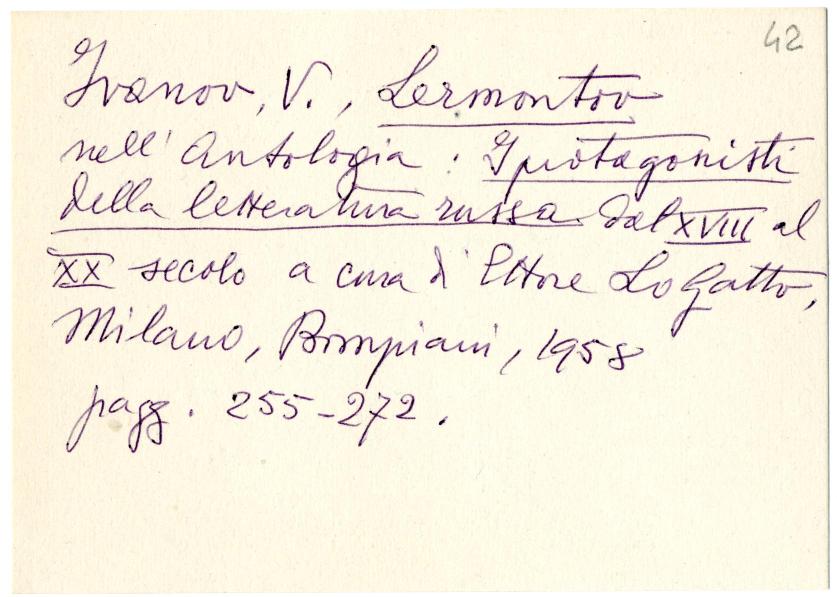 42
Ivanov, V., Lermontov
nell'Antologia: I protagonisti
della letteratura russa dal XVIII al
XX secolo a cura di Ettore Lo Gatto,
Milano, Bompiani, 1958
pagg. 255-272.